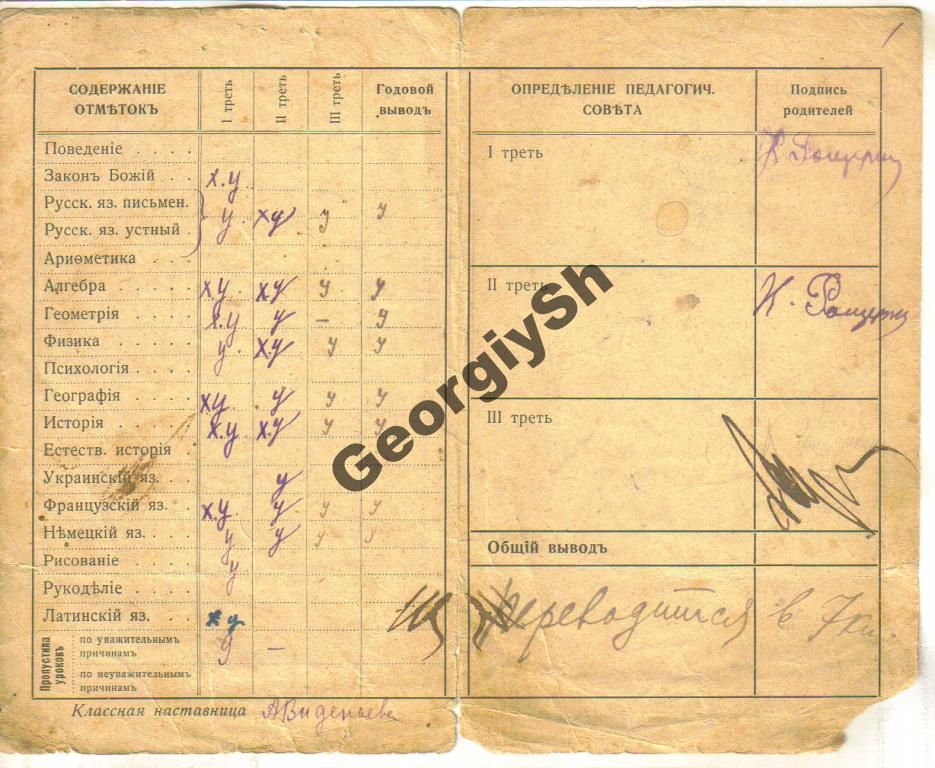 СОДЕРЖАНІЕ ОТМѢТОКЪ
I треть
II треть
III треть
Годовой выводъ
ОПРЕДѢЛЕНІЕ ПЕДАГОГИЧ. СОВѢТА
Подпись родителей
Поведеніе . . . .
Законъ Божій . . . х.у
Русск. яз. письмен.
Русск. яз. устный . у. ху у у
Ариѳметика . . .
Алгебра . . . . . ху ху у у
Геометрія . . . . х.у у – у
Физика . . . . у ху у у
Психологія . . . .
Географія . . . . ху у у у
Исторія . . . . х.у х.у у у
Естеств. исторія .
Украинскій яз. . . у
Французскій яз. . х.у у у у
Нѣмецкій яз. . . . у у у у
Рисованіе . . . . у
Рукодѣліе . . . .
Латинскій яз. . . ху
Пропустила уроковъ
по уважительнымъ причинамъ 9 –
по неуважительнымъ причинамъ
Классная наставница
I треть
II треть
К.
III треть
Общій выводъ
Переводится в 7 кл.
GeorgiySh